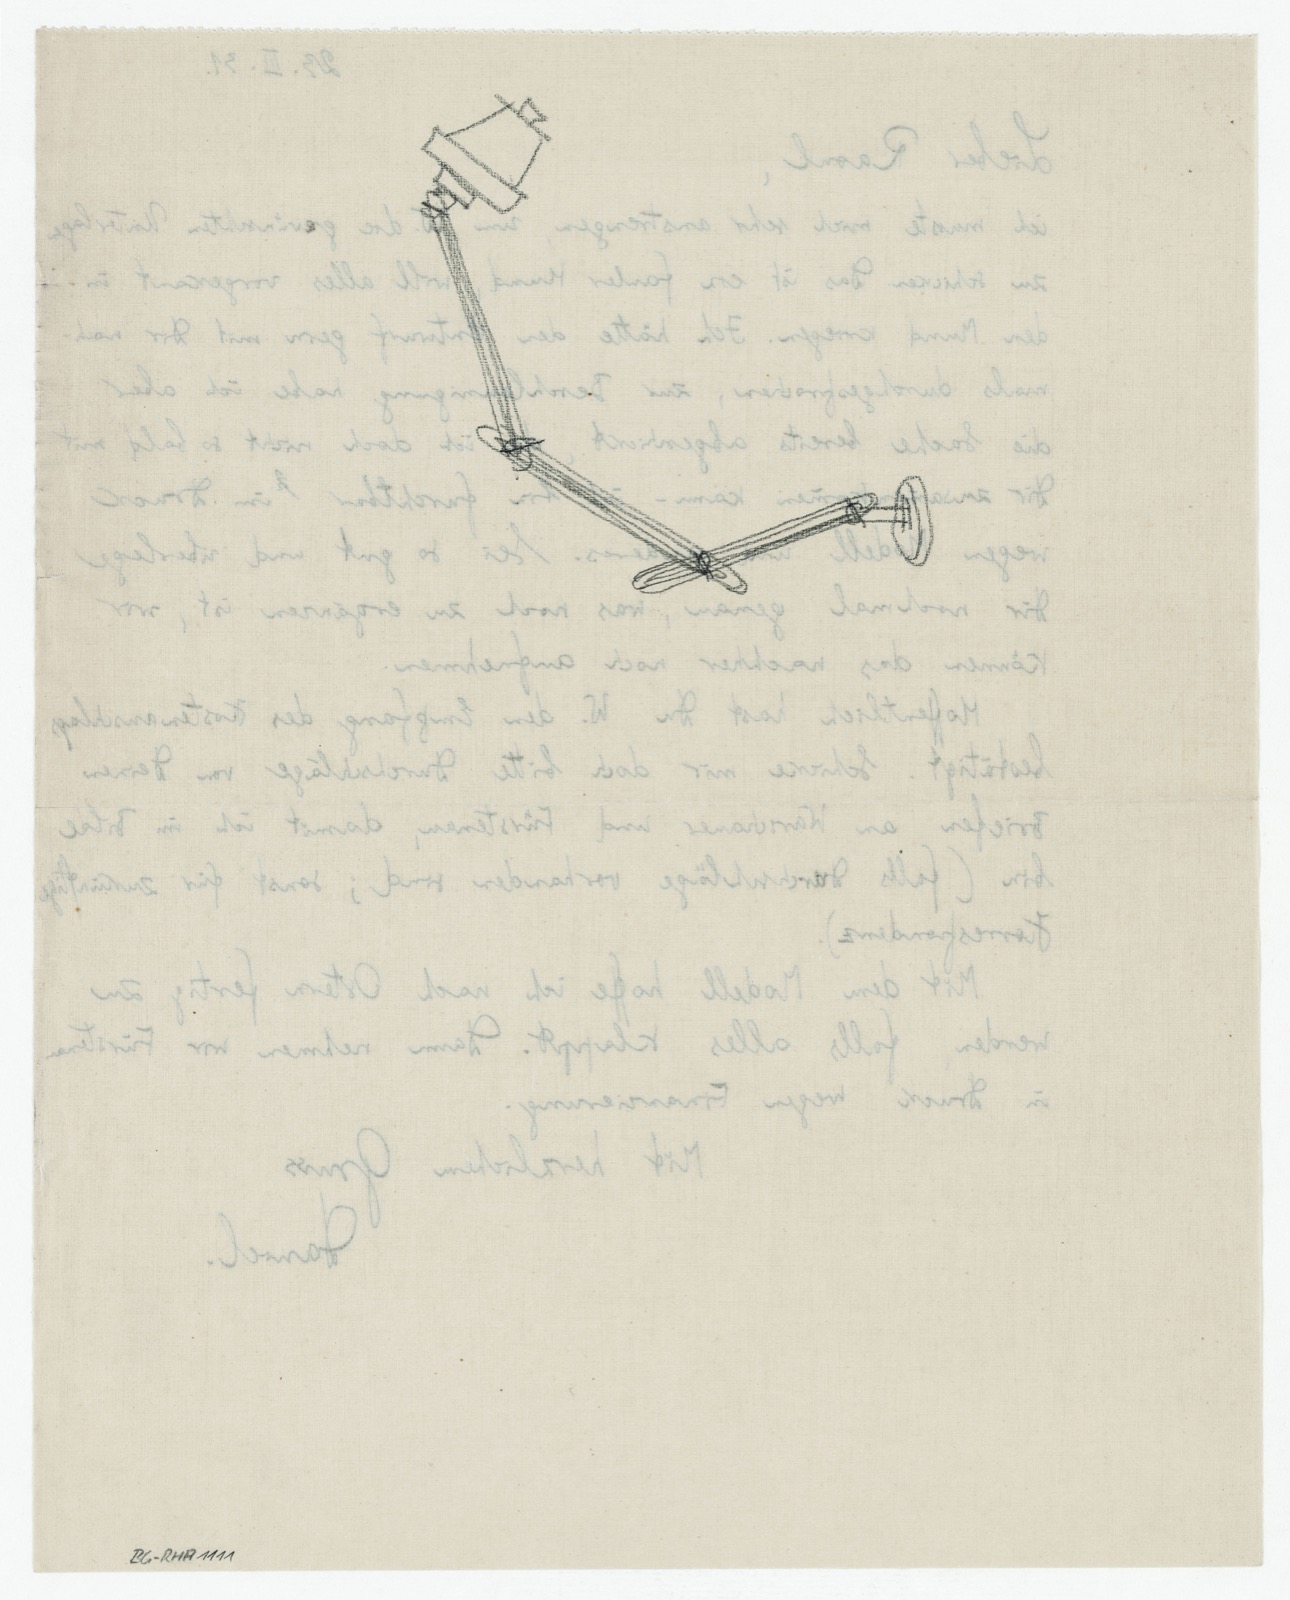 23. III. 31.
Lieber Raoul,
ich musste mich sehr anstrengen, um die gewünschten Unterlagen
zu schicken. Das ist ein fauler Hund, will alles vorgekaut in
den Mund kriegen. Ich hätte den Entwurf gern mit Dir noch-
mals durchgesprochen, zur Beschleunigung habe ich aber
die Sache bereits abgeschickt, ich doch nicht so bald mit
Dir zusammenkommen kann – bin furchtbar im Druck
wegen Modell und anderes. Sei so gut und überlege
Dir nochmal genau, was noch zu ergänzen ist, wir
können das nachher noch aufnehmen.
Hoffentlich hast Du W. den Empfang des Kostenanschlags
bestätigt. Schicke mir doch bitte Durchschläge von Deinen
Briefen an und Fürstenau, damit ich im Bilde
bin (falls Durchschläge vorhanden sind; sonst für zukünftige
Korrespondenz).
Mit dem Modell hoffe ich nach Ostern fertig zu
werden, falls alles klappt. Dann nehmen wir Fürstenau
in Druck wegen Finanzierung.
Mit herzlichem Gruss
BG-RHA 1111